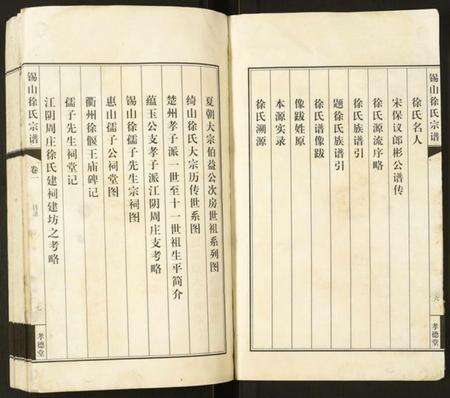 锡山徐氏宗谱
六
孝德堂
徐氏名人
宋保议郎彬公谱传
徐氏源流序略
徐氏族谱引
题徐氏族谱引
徐氏谱像跋
像跋姓原
本源实录
徐氏溯源
夏朝大宗伯益公次房世祖系列图
绮山徐氏大宗历传世系图
楚州孝子派一世至十一世祖生平简介
蕴玉公支孝子派江阴周庄支考略
锡山徐孺子先生宗祠图
惠山孺子公祠堂图
衢州徐偃王庙碑记
孺子先生祠堂记
江阴周庄徐氏建祠建坊之考略
锡山徐氏宗谱
卷一
目录
七
孝德堂